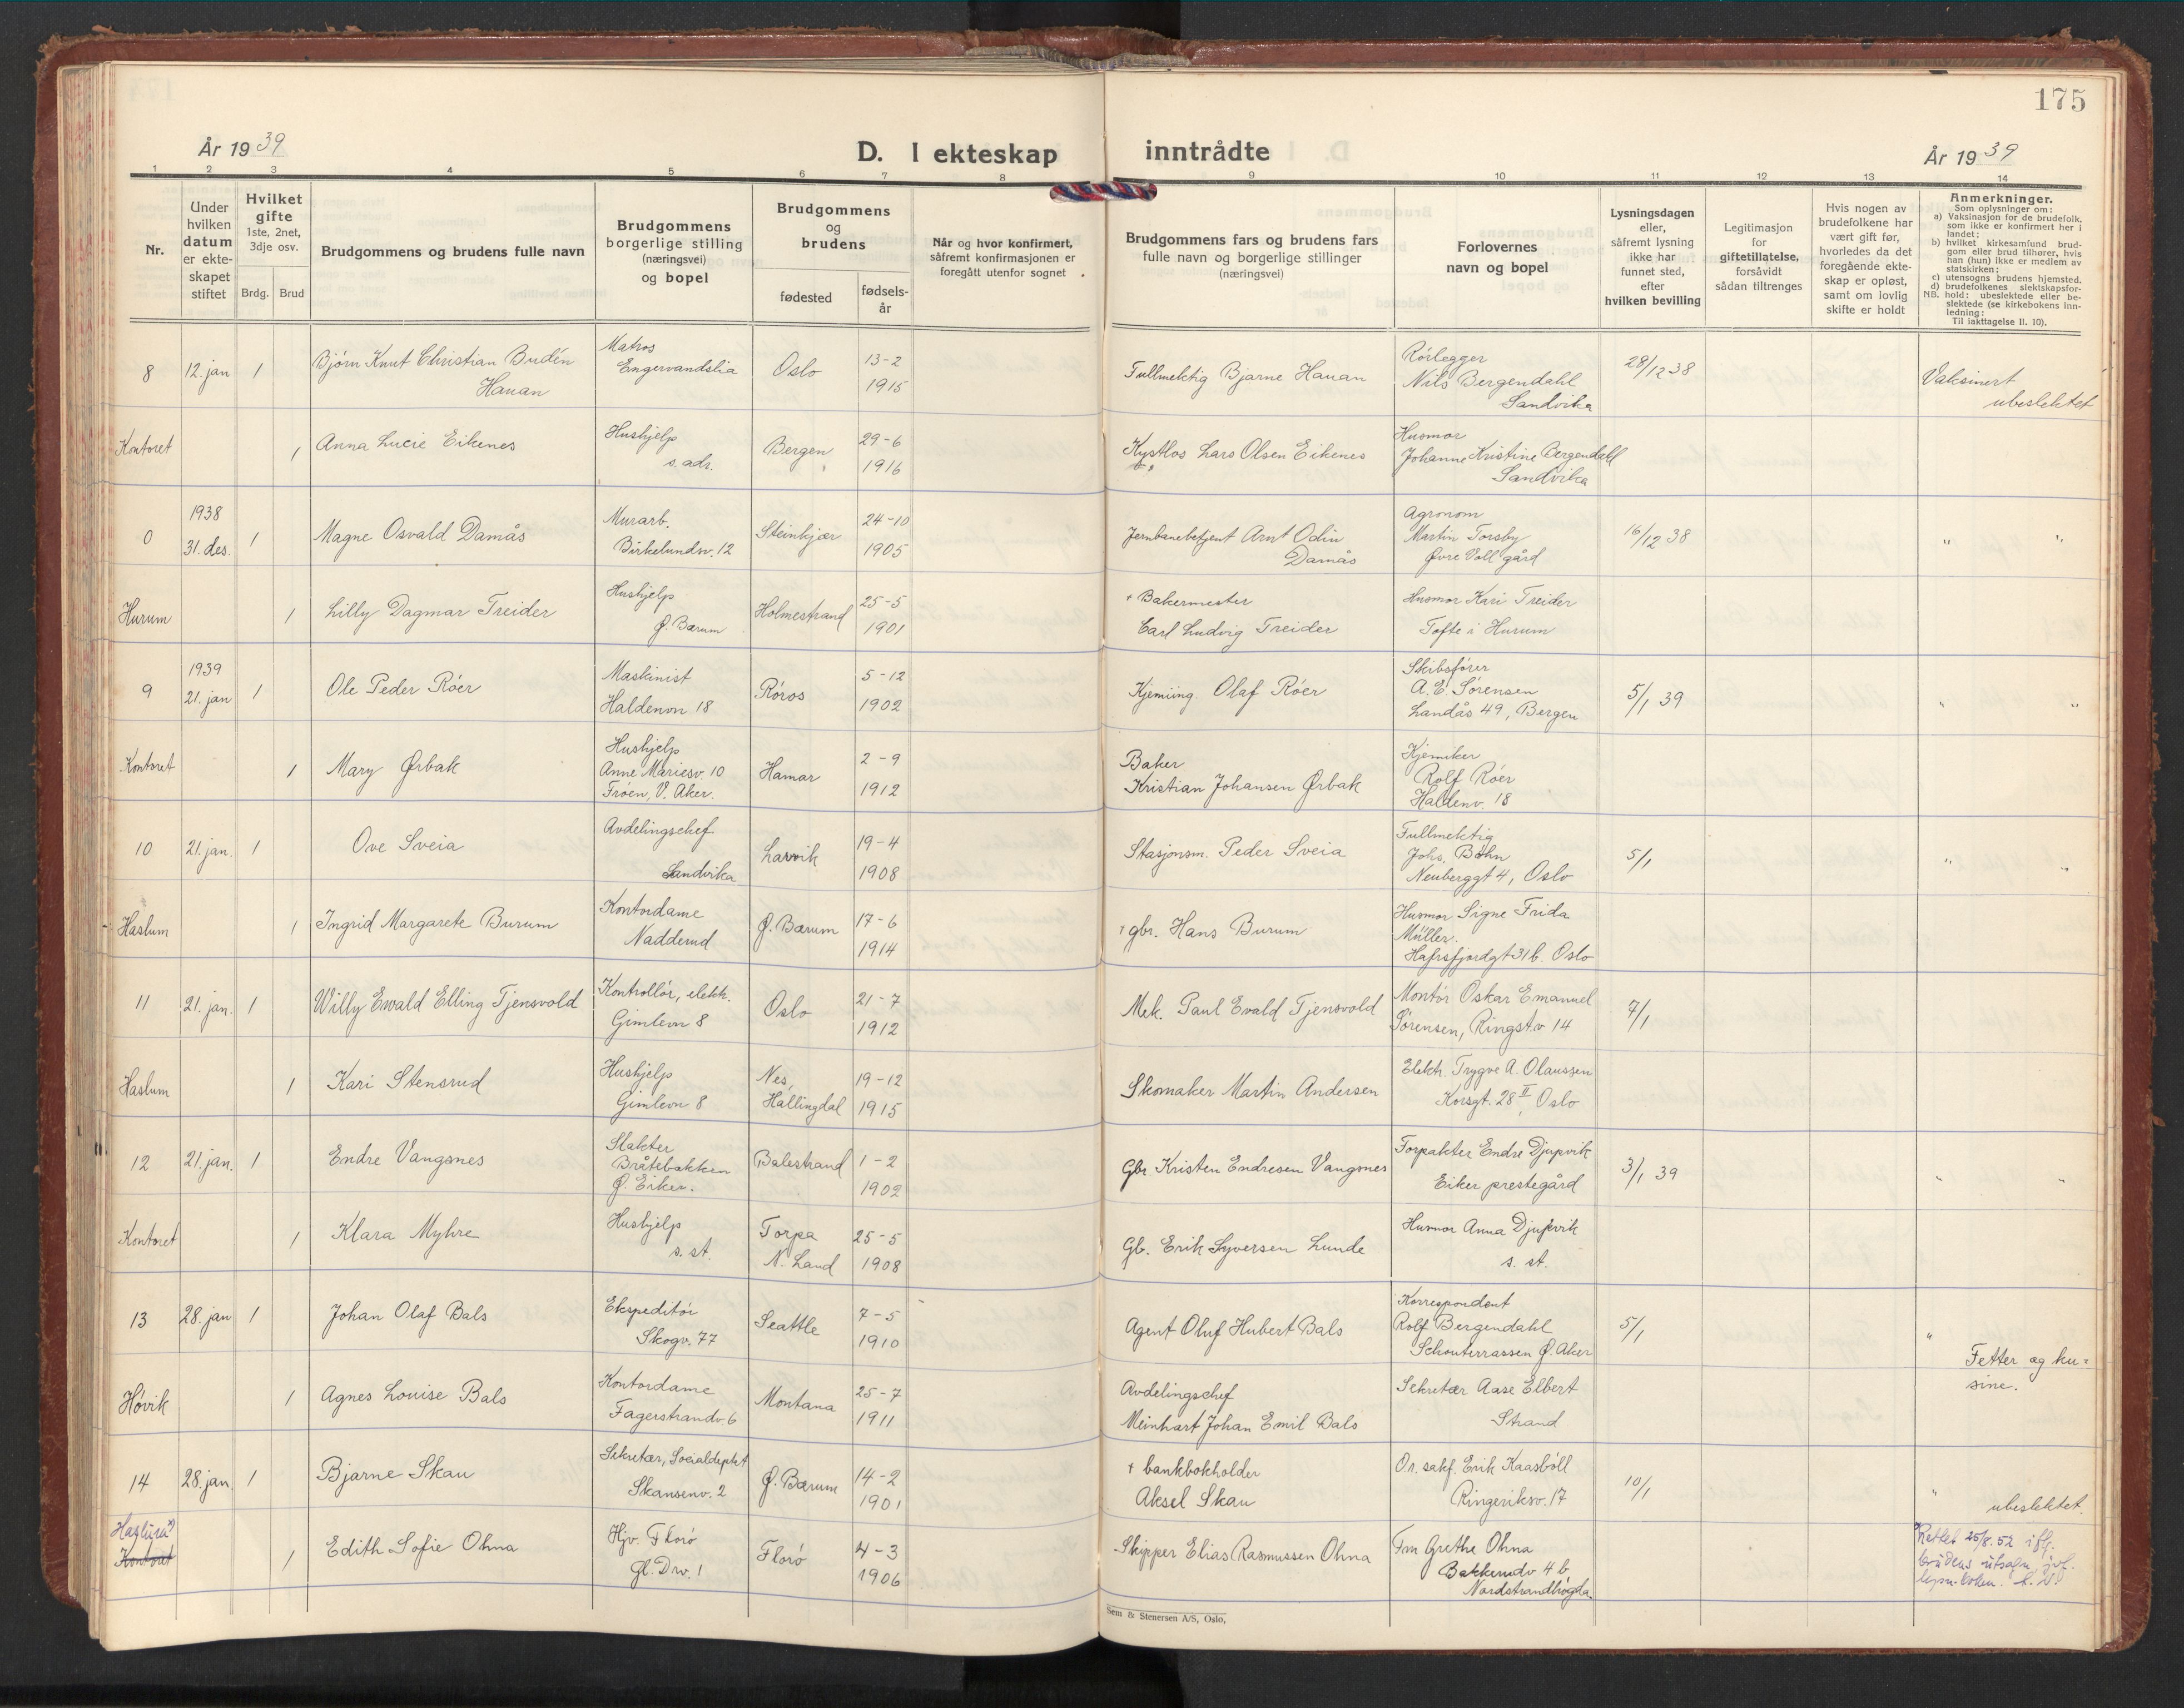 175
År 1939
D. I ekteskap inntrådte
År 1939
1 2 3 4 5 6 7 8 9 10 11 12 13 14
Nr.
Under hvilken datum er ekteskapet stiftet
Hvilket gifte 1ste, 2net, 3dje osv.
Brdg. Brud
Brudgommens og brudens fulle navn
Brudgommens borgerlige stilling (næringsvei) og bopel
Brudgommens og brudens
fødested
fødselsår
Når og hvor konfirmert, såfremt konfirmasjonen er foregått utenfor sognet
Brudgommens fars og brudens fars fulle navn og borgerlige stillinger (næringsvei)
Forlovernes navn og bopel
Lysningsdagen eller, såfremt lysning ikke har funnet sted, efter hvilken bevilling
Legitimasjon for giftetillatelse, forsåvidt sådan tiltrenges
Hvis nogen av brudefolkene har vært gift før, hvorledes da det foregående ekteskap er opløst, samt om lovlig skifte er holdt
Anmerkninger.
Som oplysninger om:
a) Vaksinasjon for de brudefolk, som ikke er konfirmert her i landet;
b) hvilket kirkesamfund brudgom eller brud tilhører, hvis han (hun) ikke er medlem av statskirken;
c) utensogns brudens hjemsted.
d) brudefolkenes slektskapsforhold: ubeslektede eller beslektede (se kirkebokens innledning:
NB.
Til iakttagelse II. 10).
8 12. jan 1 Bjørn Knut Christian Budén Hauan Matros Engervandslia Oslo 13-2 1915 Fullmektig Bjarne Hauan Rörlegger Nils Bergendahl Sandvika 28/12 38 Vaksinert ubeslektet
Kontoret 1 Anna Lucie Eikenes Hushjelp s. adr. Bergen 29-6 1916 Kystlos Lars Olsen Eikenes Husmor Johanne Kristine Bergendahl Sandvika
0 1938 31. des. 1 Magne Osvald Damås Murarb. Birkelundsv. 12 Steinkjær 24-10 1905 Jernbanebetjent Arnt Odin Damås Agronom Martin Torsby Øvre Voll gård 16/12 38 " "
Hurum 1 Lilly Dagmar Treider Hushjelp Ø. Bærum Holmestrand 25-5 1901 + Bakermester Carl Ludvig Treider Husmor Kari Treider Tofte i Hurum
9 1939 21. jan 1 Ole Peder Röer Maskinist Haldenvn 18 Röros 5-12 1902 Kjemiing. Olaf Röer Skibsfører A. E. Sørensen Landås 49, Bergen 5/1 39 " "
Kontoret 1 Mary Ørbak Hushjelp Anne Mariesv. 10 Frøen, V. Aker. Hamar 2-9 1912 Baker Kristian Johansen Ørbak Kjemiker Rolf Röer Haldenv. 18
10 21. jan. 1 Ove Sveia Avdelingschef Sandvika Larvik 19-4 1908 Stasjonsm. Peder Sveia Fullmektig Johs. Bøhn Neuberggt 4, Oslo 5/1 " "
Haslum 1 Ingrid Margarete Burum Kontordame Nadderud Ø. Bærum 17-6 1914 + gbr. Hans Burum Husmor Signe Frida Müller. Hafrsfjordgt 31b. Oslo
11 21. jan. 1 Willy Ewald Elling Tjensvold Kontrollör, elekt. Gimlevn 8 Oslo 21-7 1912 Mek. Paul Evald Tjensvold Montör Oskar Emanuel Sørensen, Ringst.v 14 7/1
Haslum 1 Kari Stensrud Hushjelp Gimlevn 8 Nes, Hallingdal 19-12 1915 Skomaker Martin Andersen Elektr. Trygve A. Olaussen Korsgt. 28 II, Oslo
12 21. jan. 1 Endre Vangsnes Slakter Bråtebakken Ø. Eiker. Balestrand 1-2 1902 Gbr. Kristen Endresen Vangsnes Forpakter Endre Djupvik Eiker prestegård 3/1 39 " "
Kontoret 1 Klara Myhre Hushjelp s. st. Torpa N. Land 25-5 1908 Gb. Erik Syversen Lunde Husmor Anna Djupvik s. st.
13 28. jan 1 Johan Olaf Bals Ekspeditör Skogv. 77 Seattle 7-5 1910 Agent Oluf Hubert Bals Korrespondent Rolf Bergendahl Schouterrassen Ø. Aker 5/1 " Fetter og kusine.
Høvik 1 Agnes Louise Bals Kontordame Fagerstrandv. 6 Montana 25-7 1911 Avdelingschef Meinhart Johan Emil Bals Sekretær Aase Elbert Strand
14 28. jan. 1 Bjarne Skau Sekretær, Socialdeptet Skansenv. 2 Ø. Bærum 14-2 1901 + bankbokholder Aksel Skau O.r. sakf. Erik Kaasböll Ringeriksv. 17 10/1 " ubeslektet.
Haslum x) Kontoret 1 Edith Sofie Ohna Hjv. Florø gl. Drv. 1 Florø 4-3 1906 Skipper Elias Rasmussen Ohna Frk. Grethe Ohna Bakkeudv 4 b, Nordstrandhøgda. Rettet 25/8. 52 iflg. brudens utsagn jvf.
Sem & Stenersen A/S, Oslo,